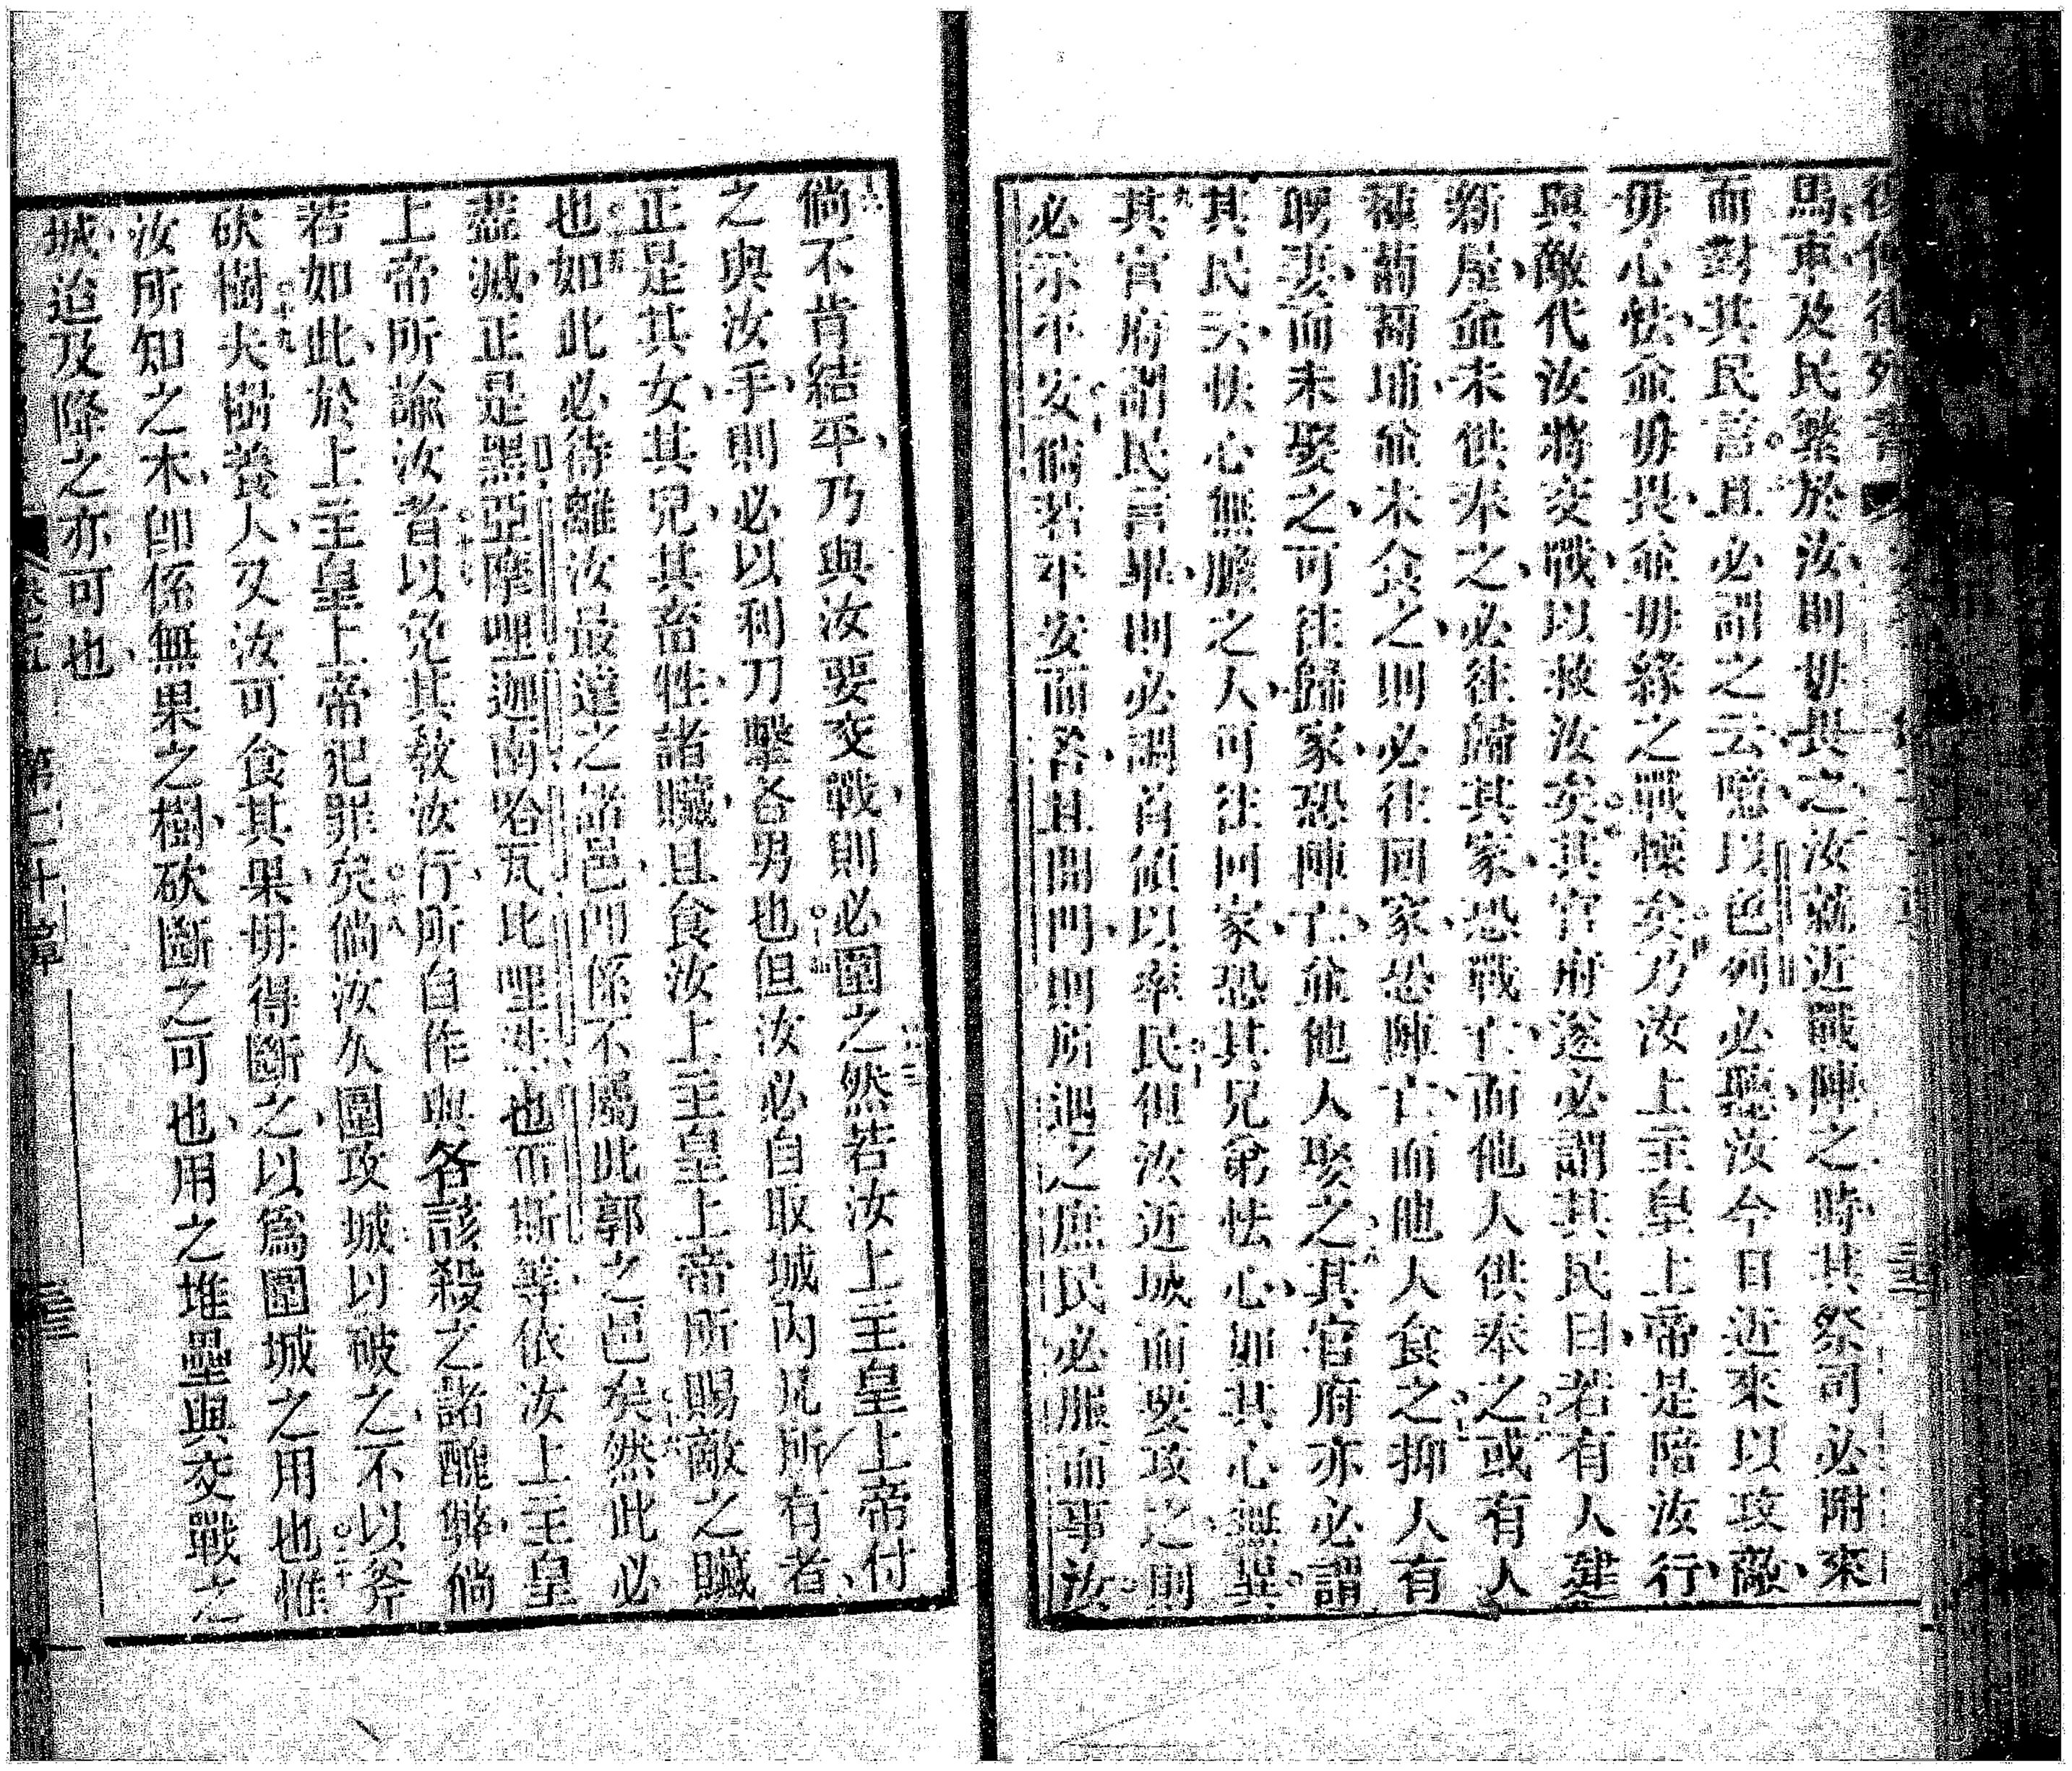 復傳律列書
馬車及民繁於汝則毋畏之汝就近戰陣之時其祭司必附來
而對其民言且必謂之云噫以色列必聽汝今日近來以攻敵
毋心怯並毋畏並毋緣之戰慄矣乃汝上主皇上帝是陪汝行
與敵代汝將交戰以救汝矣其官府遂必謂其民曰若有人建
新屋並未供奉之必往歸其家恐戰亡而他人供奉之或有人
種葡萄埔並未食之則必往回家恐陣亡而他人食之抑人有
聘妻而未娶之可往歸家恐陣亡並他人娶之其官府亦必謂
其民云怏心無膽之人可往回家恐其兄弟怯心如其心無異
其官府謂民言畢則必調首領以率民但汝近城而要攻之則
必示平安倘若平安而答且開門則所遇之庶民必服而事汝
倘不肯結平乃與汝要交戰則必圍之然若汝上主皇上帝付
之與汝手則必以利刀擊各男也但汝必自取城內凡所有者
正是其女其兒其畜牲諸贓且食汝上主皇上帝所賜敵之贓
也如此必待離汝最遠之諸邑即係不屬此郭之邑矣然此必
盡滅正是黑亞摩哩迦南咯瓦比哩洙也布斯等依汝上主皇
上帝所諭汝者以免其教汝行所自作與各該殺之諸醜弊倘
若如此於上主皇上帝犯罪矣倘汝久圍攻城以破之不以斧
砍樹夫樹養人又汝可食其果毋得斷之以爲圍城之用也惟
汝所知之木即係無果之樹砍斷之可也用之堆壘與交戰之
城迨及降之亦可也
卷五 第二十章 三三